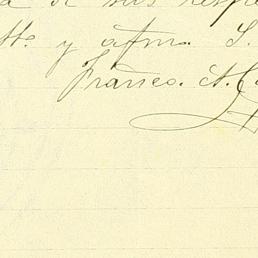 a de sus resp
Atto. y afmo. S.
Franco. A. C